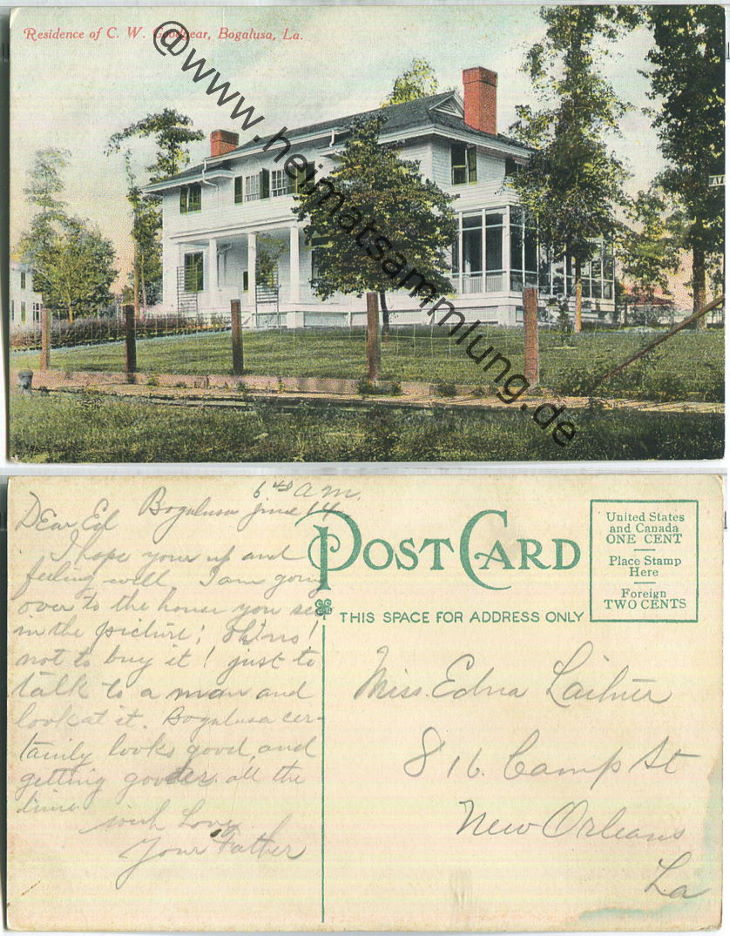 Residence of C. W. Goodyear, Bogalusa, La.
@www.heimatsammlung.de
6 40 a m.
Bogalusa June 14
Dear Ed
I hope your up and
feeling well. I am going
over to the house you see
in the picture; Oh! no!
not to buy it! just to
talk to a man and
look at it. Bogalusa cer-
tainly looks good, and
getting gooder all the
time
with Love
Your Father
POST CARD
THIS SPACE FOR ADDRESS ONLY
United States
and Canada
ONE CENT
Place Stamp
Here
Foreign
TWO CENTS
Miss. Edna
816. Camp St
New Orleans
La